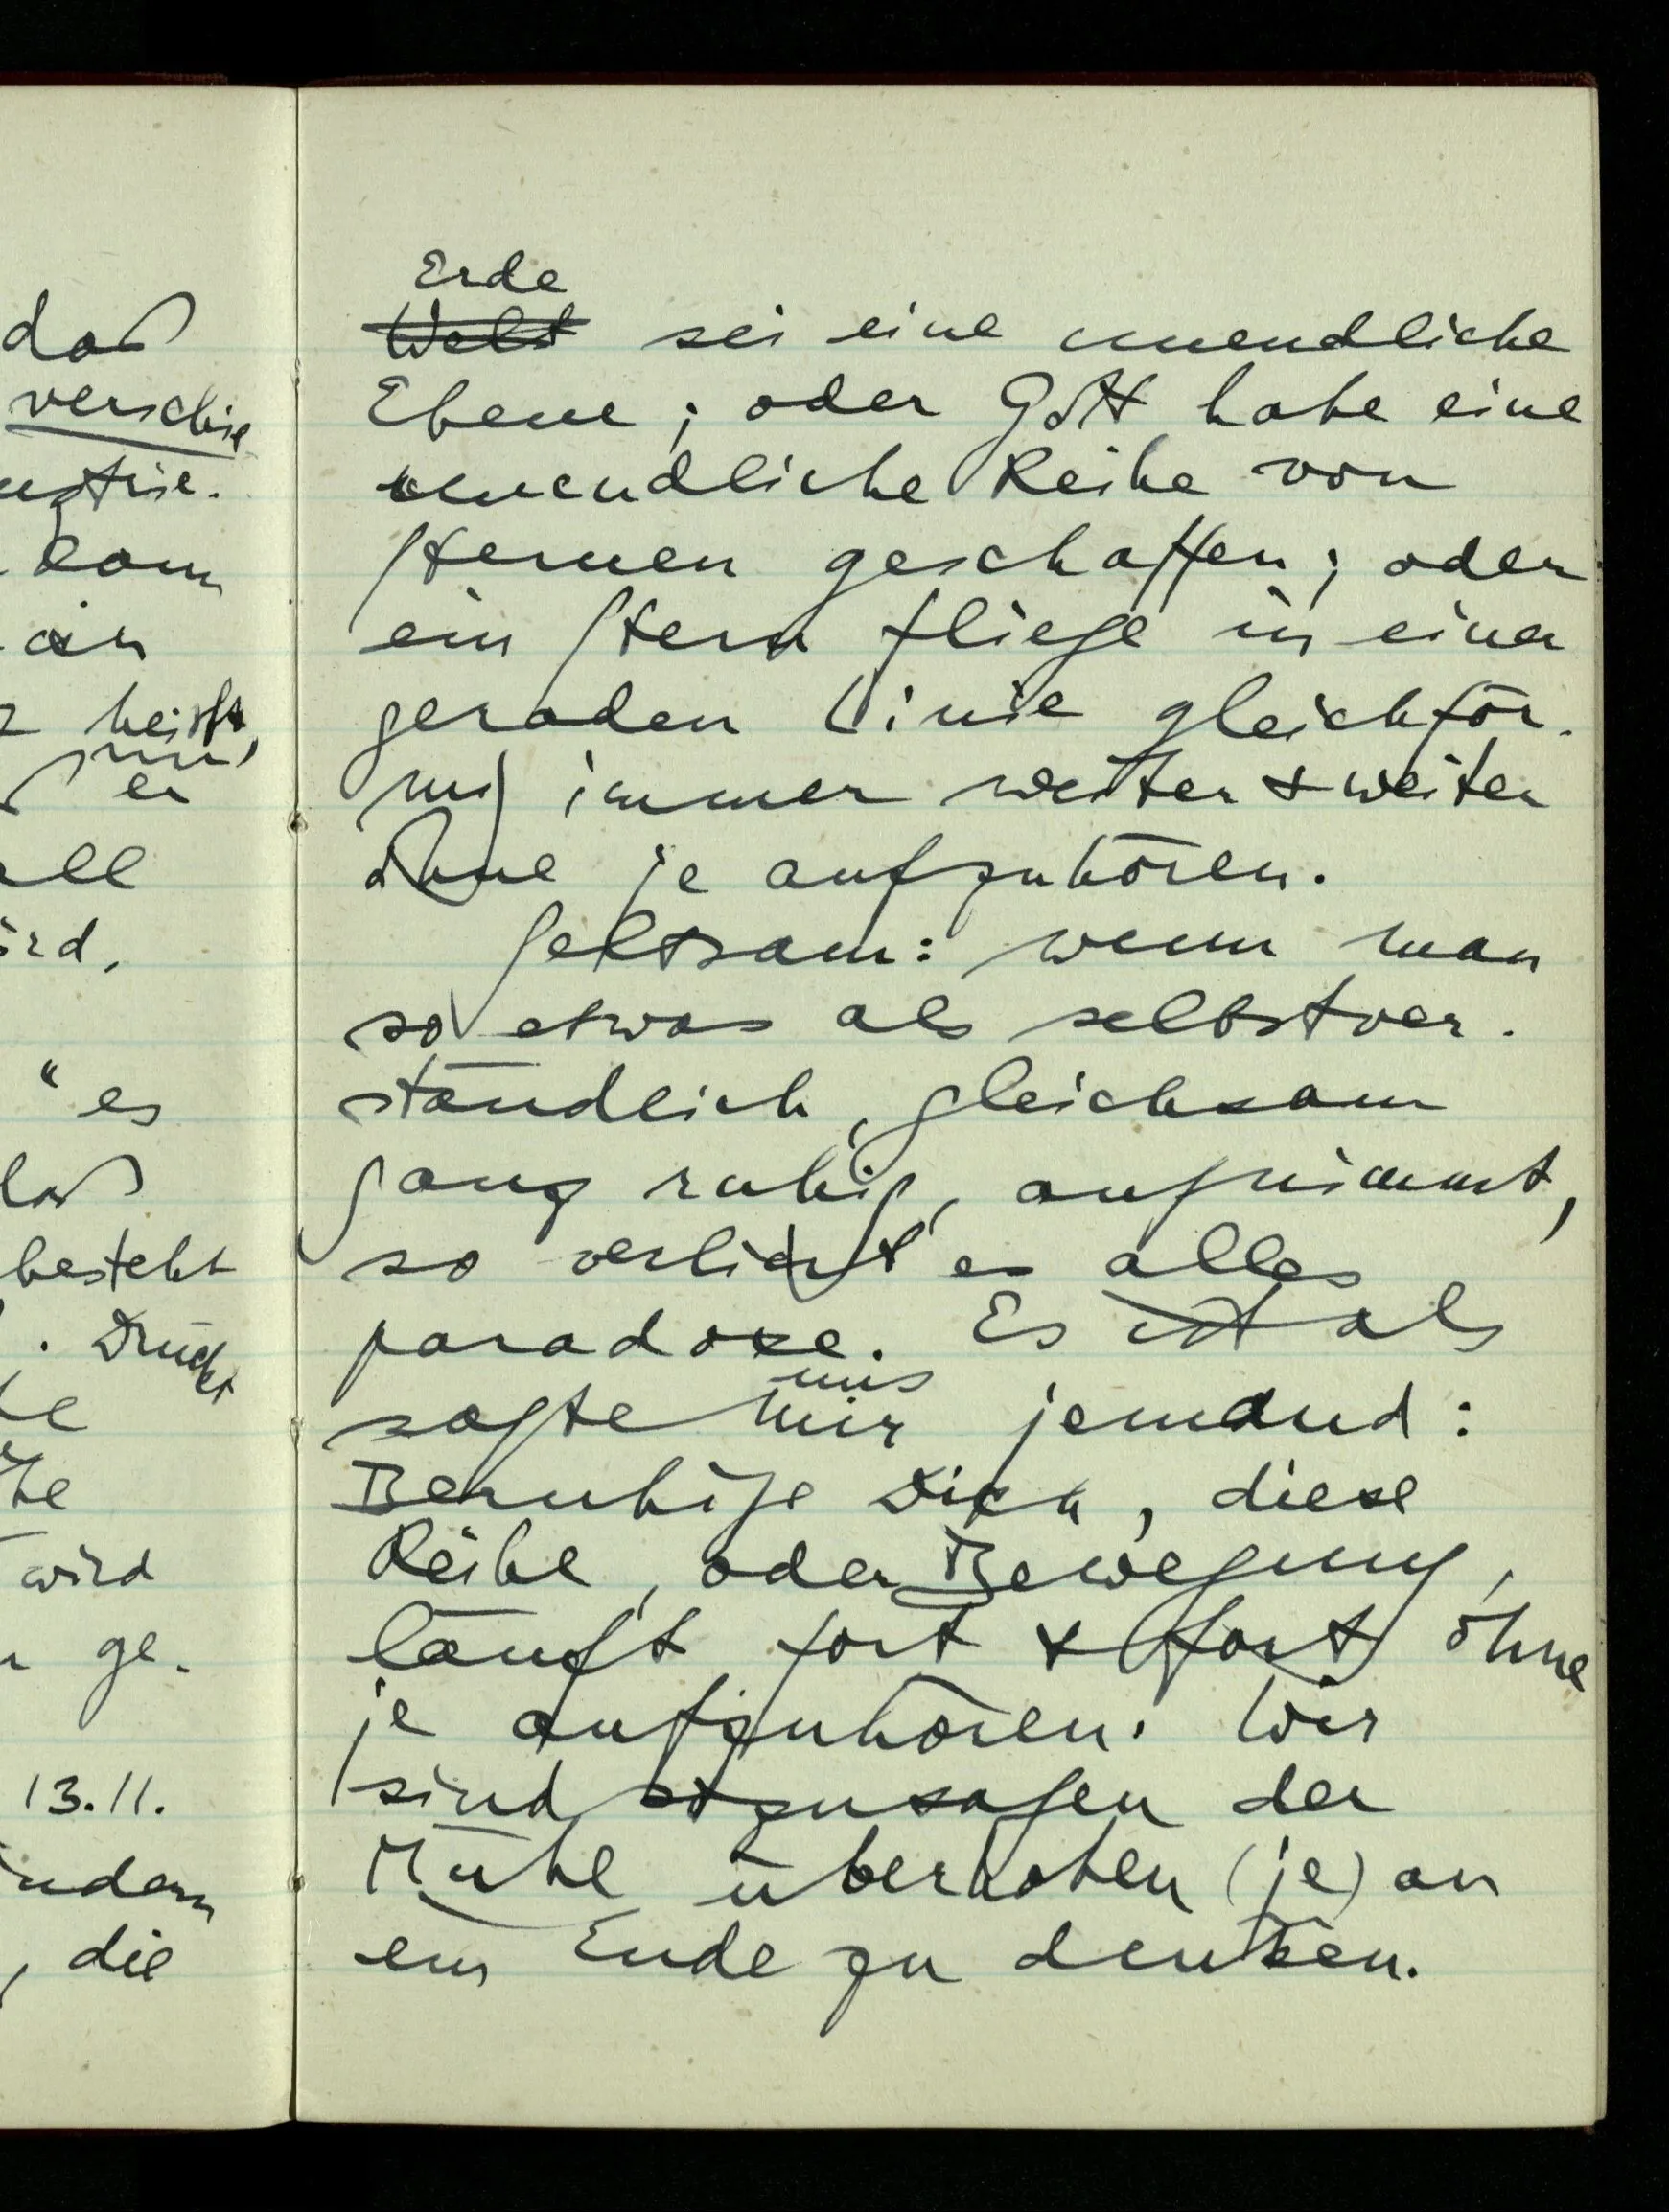 daß
verschie
ustrie.
kann
ein
heißt,
nun,
er
all
ird,
" es
daß
besteht
. Drückt
te
wird
ge.
13.11.
ndern
, die
Erde
Welt sei eine unendliche
Ebene; oder Gott habe eine
unendliche Reihe von
Sternen geschaffen; oder
ein Stern fliege in einer
geraden Linie gleichför-
mig immer weiter & weiter
ohne je aufzuhören.
Seltsam: wenn man
so etwas als selbstver-
ständlich, gleichsam
ganz ruhig, aufnimmt,
so verliert es alles
paradoxe. Es ist als
uns
sagte mir jemand:
Beruhige Dich, diese
Reihe, oder Bewegung,
läuft fort & fort ohne
je aufzuhören. Wir
sind sozusagen der
Mühe überhoben (je) an
ein Ende zu denken.